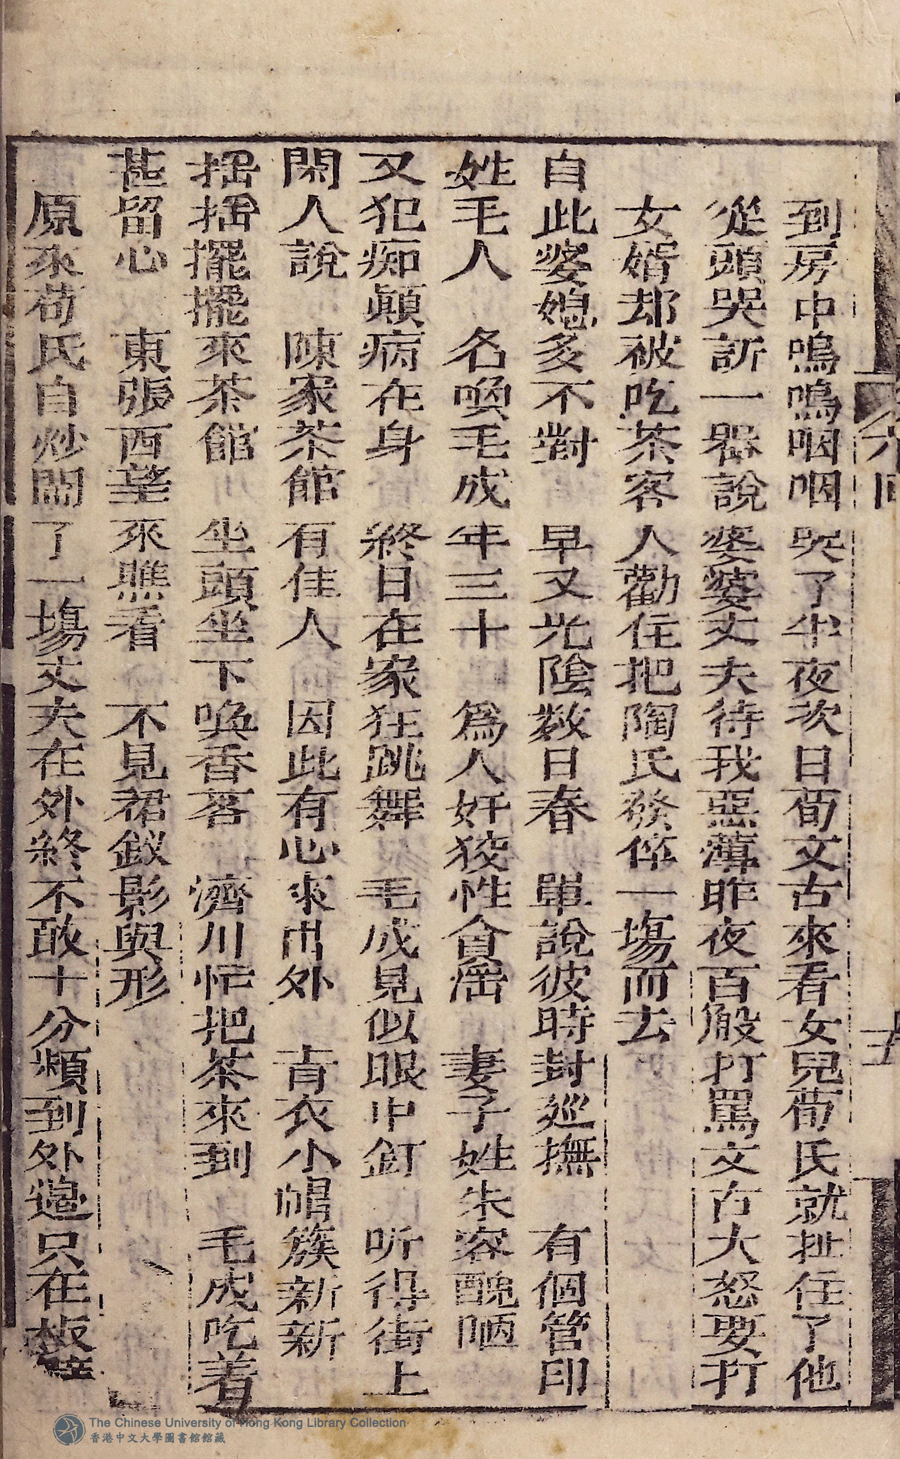 六回
十五
到房中嗚嗚咽咽哭了半夜次日荀文古來看女兒荀氏就扯住了他
從頭哭訴一畨說婆婆丈夫待我惡薄昨夜百般打罵文古大怒要打
女婿却被吃茶客人勸住把陶氏發倅一塲而去
自此婆媳多不對 早又光陰数日春 單說彼時封廵撫 有個管印
姓毛人 名喚毛成年三十 爲人奸狡性貪滛 妻子姓朱容醜陋
又犯痴顛病在身 終日在家狂跳舞 毛成見似眼中釘 听得街上
閑人說 陳家茶館有佳人 因此有心來出外 青衣小帽簇新新
揺揺擺擺來茶館 坐頭坐下喚香茗 濟川忙把茶來到 毛成吃着
甚留心 東張西望來瞧看 不見裙釵影與形
原來荀氏自炒閙了一塲丈夫在外終不敢十分頻到外邉只在板壁
The Chinese University of Hong Kong Library Collection
香港中文大學圖書館館藏